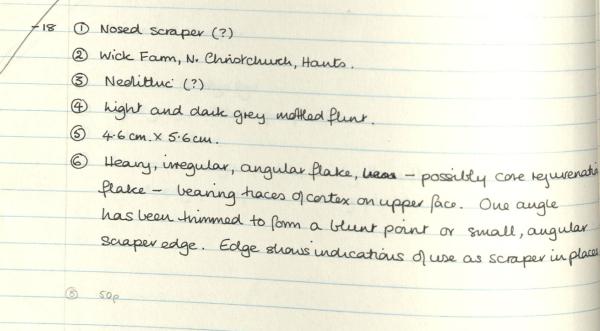 -18 ① Nosed scraper (?)
② Wick Farm, N. Christchurch, Hants.
③ Neolithic (?)
④ Light and dark grey mottled flint.
⑤ 4.6 cm. x 5.6 cm.
⑥ Heavy, irregular, angular flake, – possibly core rejuvenati
flake – bearing traces of cortex on upper face. One angle
has been trimmed to form a blunt point or small, angular
scraper edge. Edge shows indications of use as scraper in places
50p